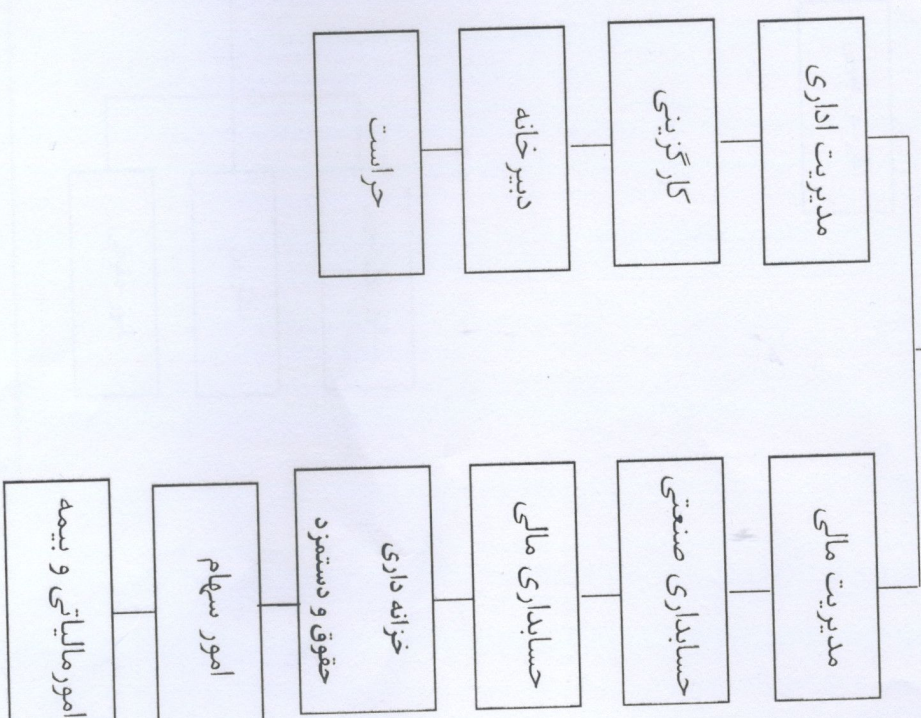 مدیریت اداری
کارگزینی
دبیر خانه
حراست
مدیریت مالی
حسابداری صنعتی
حسابداری مالی
خزانه داری
حقوق و دستمزد
امور سهام
امورمالیاتی و بیمه